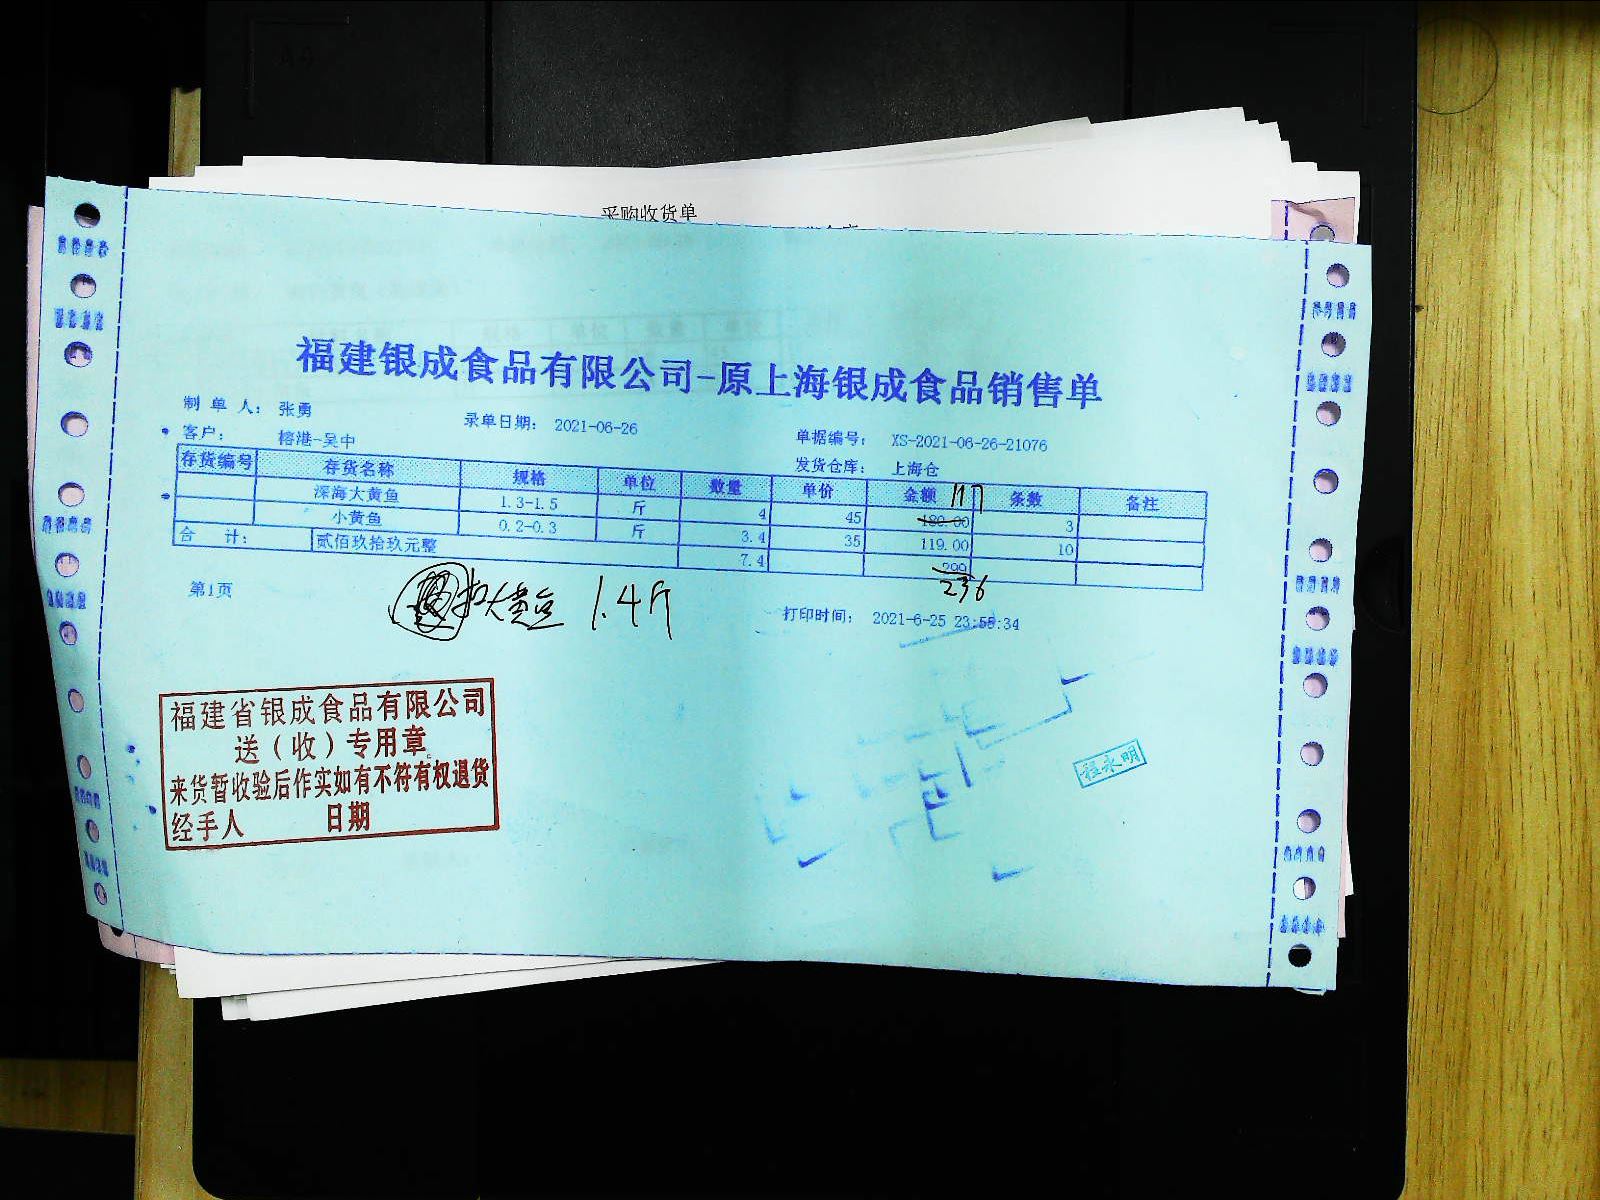 采购收货单
福建银成食品有限公司-原上海银成食品销售单
制 单 人： 张勇 录单日期： 2021-06-26 单据编号： XS-2021-06-26-21076
客户： 榕港-吴中 发货仓库： 上海仓
存货编号 存货名称 规格 单位 数量 单价 金额 117 条数 备注
深海大黄鱼 1.3-1.5 斤 4 45 180.00 3
小黄鱼 0.2-0.3 斤 3.4 35 119.00 10
合 计： 贰佰玖拾玖元整 7.4 299
236
第1页 扣大黄鱼 1.4斤 打印时间： 2021-6-25 23:55:34
福建省银成食品有限公司
送（收）专用章
来货暂收验后作实如有不符有权退货
经手人 日期
程永明